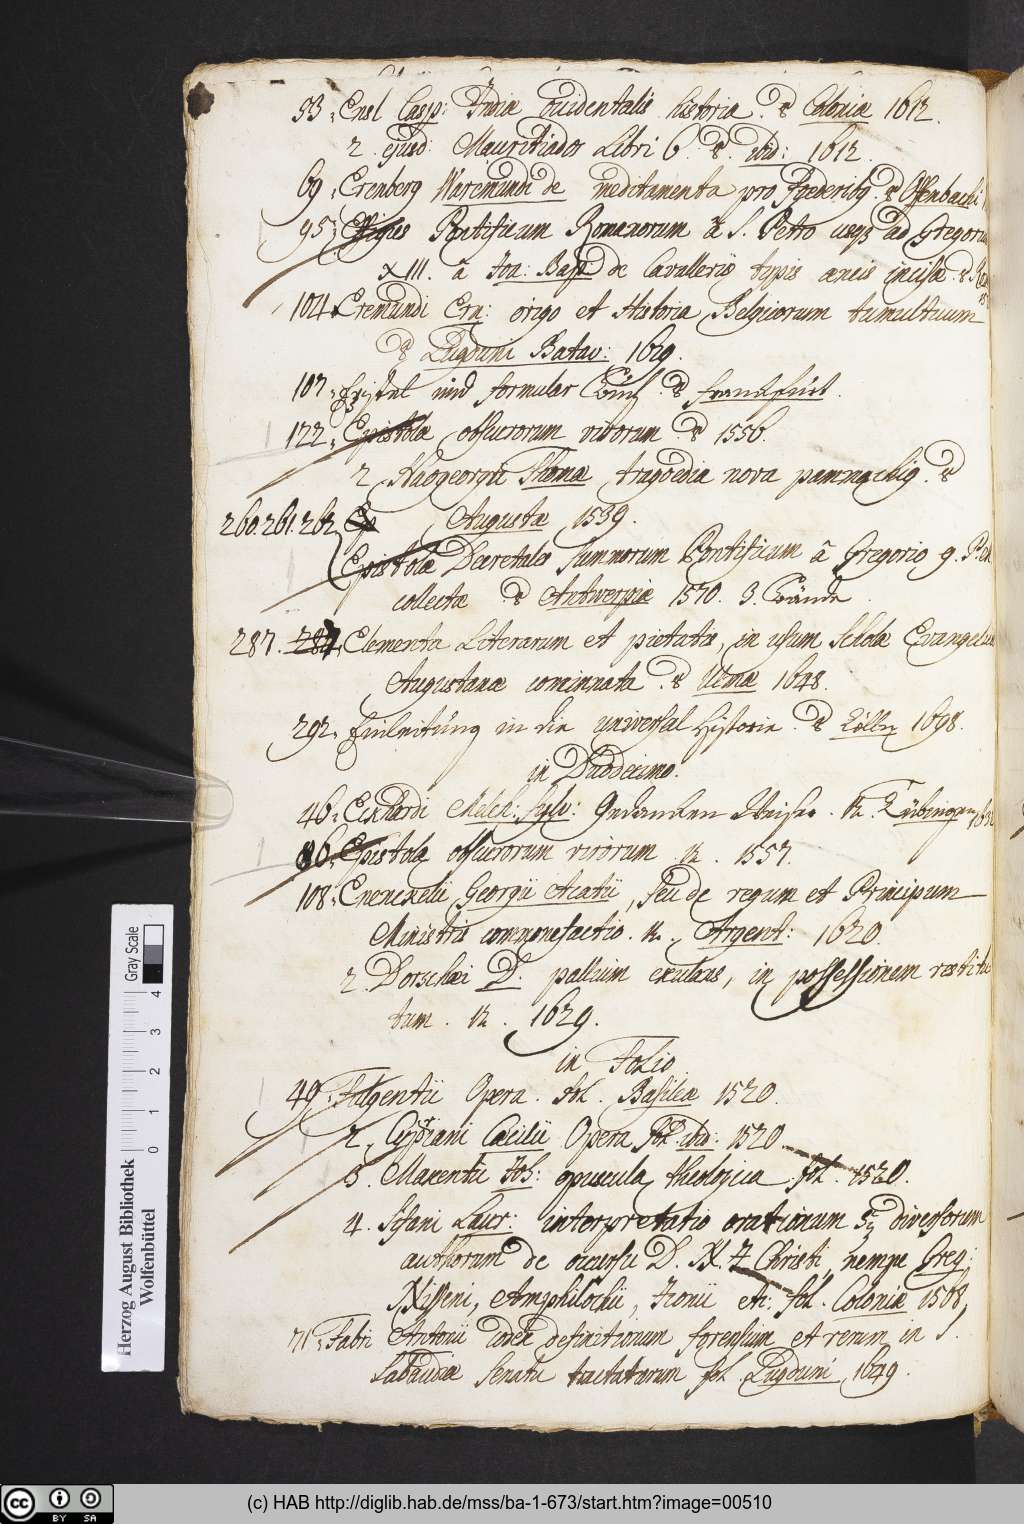 53. Ensl Casp: Indiæ occidentalis historia. 8 Coloniæ 1612.
2. ejusd: Mauritiados Libri 6. 8. ibid: 1612.
69. Erenberg Waremundi de meditamenta pro foederibq. 8 Offenbachi
95. Effigies Pontificum Romanorum â S. Petro usqz ad Gregoriu
XIII. â Joa: Bapt de Cavalleriis typis æneis incisæ. 8
104. Eremundi Ern: origo et Historia Belgicorum tumultuum
8 Lugduni Batav: 1629.
107. und formular 8 franckfürt.
122. Epistolæ obscurorum virorum. 8 1556.
2 Naogeorgii Thomæ tragoedia nova pammachiq. 8
Augustæ 1539.
260. 261. 262 Ep
Epistolæ Decretales Summorum Pontificum â Gregorio 9. P.
collectæ 8 Antwerpiæ 1570. 3. Bände.
287. 284. Elementa Literarum et pietatis, in usum Scholæ Evangelicæ
Augustanæ concinnata. 8 Ulmæ 1648.
292. Einleitüng in die universal Historie. 8 Cölln 1698.
in Duodecimo.
46. Eckhardi Melch: Sylv: Gedancken Weiser. 12. Tübingen
86. Epistolæ obscurorum virorum 12. 1557.
108. Enenckelii Georgii Acatii, seu de regum et Principum
Ministris commonefactio. 12. Argent: 1620.
2 Dorschæi D: pallium exulans, in possessionem restitu
tum. 12. 1629.
in Folio
49. Fulgentii Opera. fol. Basileæ 1520.
2. Cypriani Cæcilii Opera fol. ibid: 1520
3. Maxentii Joh: opuscula theologica. fol. 1520.
4. Sifani Laur: interpretatio orationum 5z diversorum
authorum de occursu D. N. J Christi, nempe Greg:
Nisseni, Amphilochii, etc: fol. Coloniæ 1568,
71. Fabri Antonii codex definitionum forensium et rerum in S.
Sabaudiæ Senatu tractatarum fol. Lugduni 1649.
Gray Scale
0 1 2 3 4
Herzog August Bibliothek
Wolfenbüttel
cc BY SA
(c) HAB http://diglib.hab.de/mss/ba-1-673/start.htm?image=00510